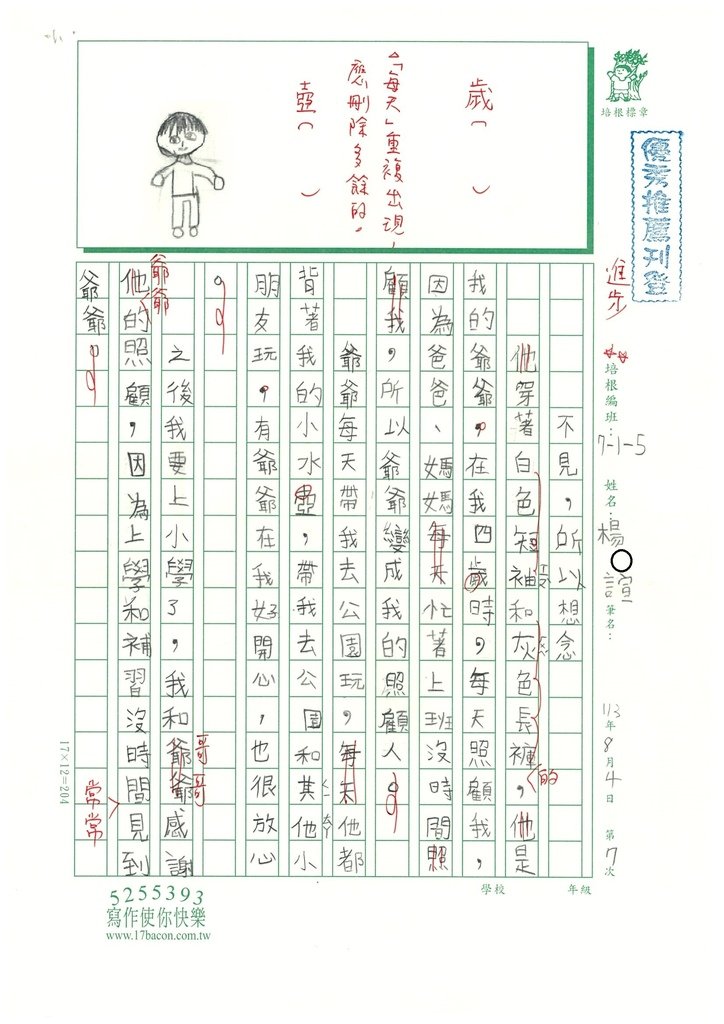 歲（　）
△「每天」重複出現，
應刪除多餘的。
壺（　）
培根標章
優秀推薦刊登
進步
培根編班：7-1-5
姓名：楊○諠
筆名：
113年8月4日
第7次
學校
年級
不見，所以想念
他穿著白色短袖和灰色長褲，他是
的
我的爺爺，在我四歲時，每天照顧我，
因為爸爸、媽媽每天忙著上班沒時間照
顧我，所以爺爺變成我的照顧人。
爺爺每天帶我去公園玩，每天他都
背著我的小水壺，帶我去公園和其他小
朋友玩，有爺爺在我好開心，也很放心
。
之後我要上小學了，我和爺爺感謝
哥哥
爺爺
他的照顧，因為上學和補習沒時間見到
常常
爺爺。
17×12=204
5255393
寫作使你快樂
www.17bacon.com.tw